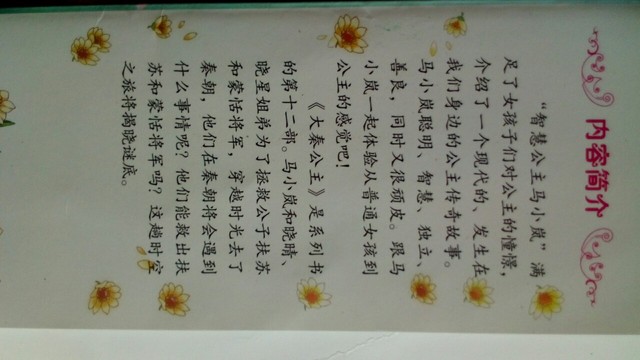 内容简介
“智慧公主马小岚”满
足了女孩子们对公主的憧憬，
介绍了一个现代的、发生在
我们身边的公主传奇故事。
马小岚聪明、智慧、独立、
善良，同时又很顽皮。跟马
小岚一起体验从普通女孩到
公主的感觉吧！
《大秦公主》是系列书
的第十二部。马小岚和晓晴、
晓星姐弟为了拯救公子扶苏
和蒙恬将军，穿越时光去了
秦朝，他们在秦朝将会遇到
什么事情呢？他们能救出扶
苏和蒙恬将军吗？这趟时空
之旅将揭晓谜底。